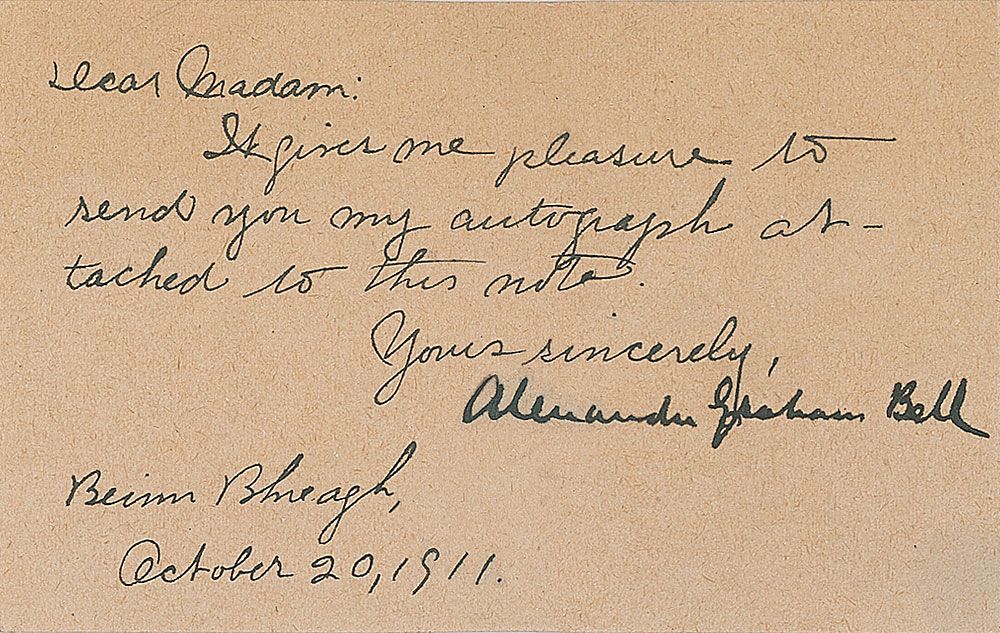 Dear Madam:
It gives me pleasure to
send you my autograph at-
tached to this note.
Yours sincerely,
Alexander Graham Bell
Beinn Bhreagh,
October 20, 1911.